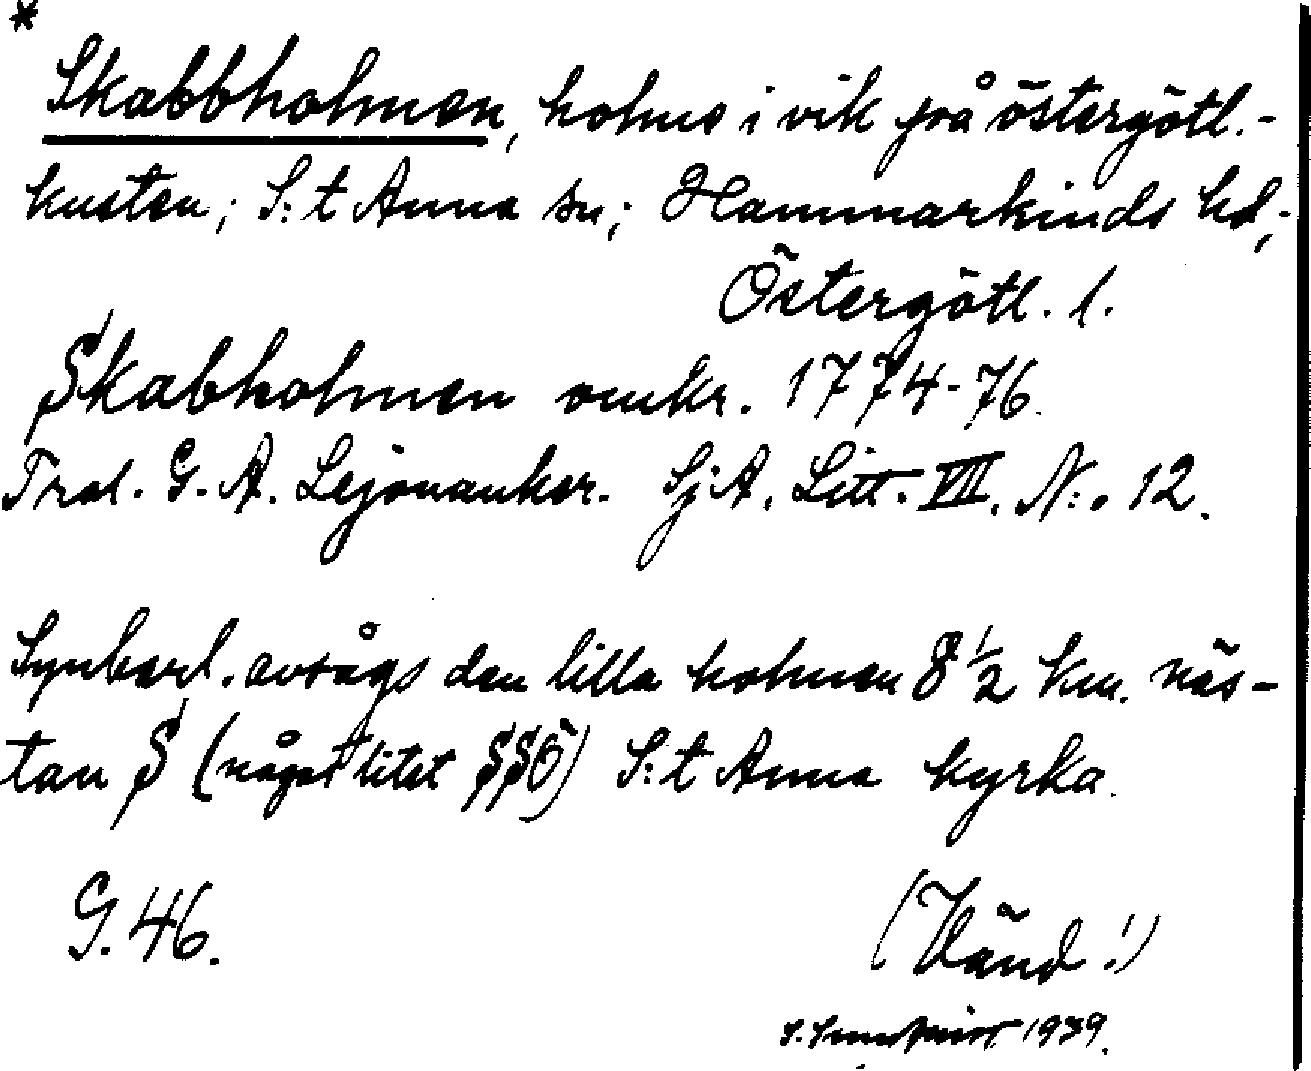 *
Skabbholmen, holme i vik på östergötl.-
kusten; S:t Anna sn; Hammarkinds hd;
Östergötl. l.
Skabholmen omkr. 1774-76.
Fred. G. A. Lejonanker. SjA. Litt. VII. N:o 12.
Synbarl. avsågs den lilla holmen 8 ½ km. näs-
tan S (något litet SSÖ) S:t Anna kyrka.
G. 46.
(Vänd!)
S. 1939.